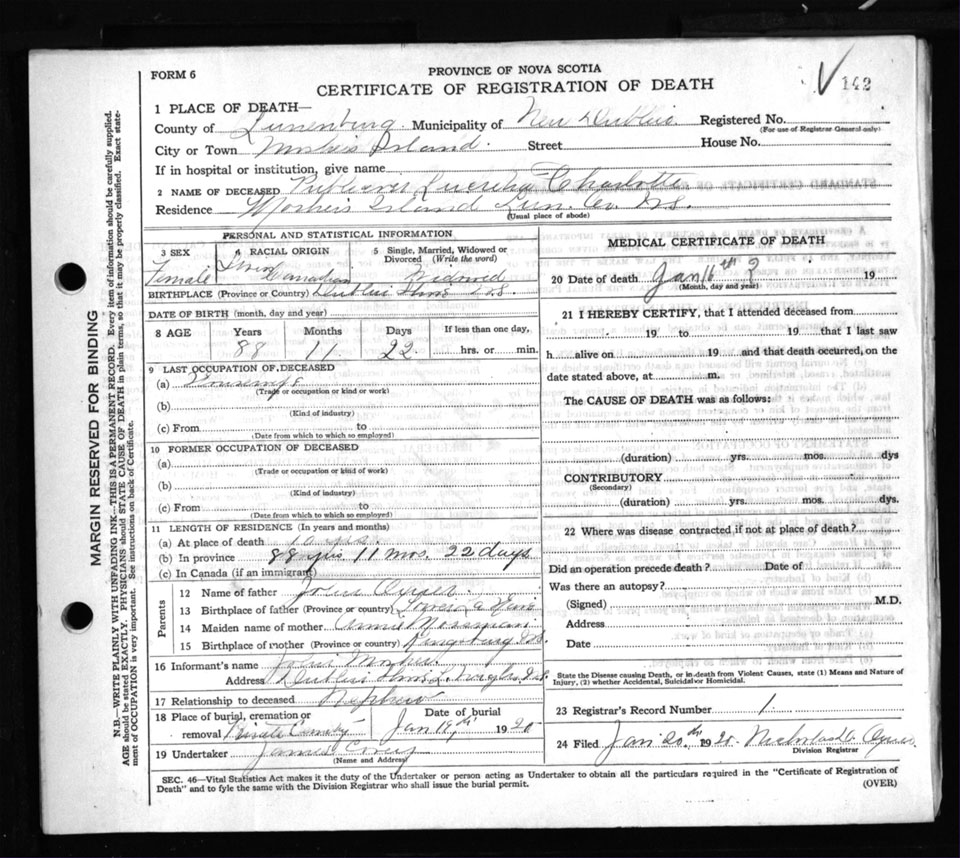 FORM 6
PROVINCE OF NOVA SCOTIA
CERTIFICATE OF REGISTRATION OF DEATH
142
1 PLACE OF DEATH—
County of Lunenburg Municipality of New Dublin Registered No.
(For use of Registrar General only)
City or Town Island Street House No.
If in hospital or institution, give name
2 NAME OF DECEASED Charlotte
Residence Island Lun. Co. N.S.
(Usual place of abode)
PERSONAL AND STATISTICAL INFORMATION
3 SEX
Female
4 RACIAL ORIGIN
Canadian
5 Single, Married, Widowed or Divorced (Write the word)
Widowed
BIRTHPLACE (Province or Country) Dublin Shore
DATE OF BIRTH (month, day and year)
8 AGE Years Months Days If less than one day,
88 11 22 hrs. or min.
9 LAST OCCUPATION OF DECEASED
(a)
(Trade or occupation or kind or work)
(b)
(Kind of industry)
(c) From to
(Date from which to which so employed)
10 FORMER OCCUPATION OF DECEASED
(a)
(Trade or occupation or kind of work)
(b)
(Kind of industry)
(c) From to
(Date from which to which so employed)
11 LENGTH OF RESIDENCE (In years and months)
(a) At place of death 10 yrs.
(b) In province 88 yrs 11 mos. 22 days
(c) In Canada (if an immigrant)
Parents
12 Name of father John
13 Birthplace of father (Province or country)
14 Maiden name of mother Annie Mossman
15 Birthplace of mother (Province or country) Kingsburg
16 Informant's name
Address Dublin Shore
17 Relationship to deceased Nephew
18 Place of burial, cremation or removal Private Date of burial Jan 18th 1920
19 Undertaker James
(Name and Address)
MEDICAL CERTIFICATE OF DEATH
20 Date of death Jan 16th 19
(Month, day and year)
21 I HEREBY CERTIFY, that I attended deceased from
19 to 19 that I last saw
h alive on 19 and that death occurred, on the
date stated above, at m.
The CAUSE OF DEATH was as follows:
(duration) yrs. mos. dys
CONTRIBUTORY
(Secondary)
(duration) yrs. mos. dys.
22 Where was disease contracted if not at place of death?
Did an operation precede death? Date of
Was there an autopsy?
(Signed) M.D.
Address
Date
State the Disease causing Death, or in death from Violent Causes, state (1) Means and Nature of
Injury, (2) whether Accidental, Suicidal or Homicidal.
23 Registrar's Record Number 1.
24 Filed Jan 20th 1920
Division Registrar
SEC. 46—Vital Statistics Act makes it the duty of the Undertaker or person acting as Undertaker to obtain all the particulars required in the "Certificate of Registration of
Death" and to fyle the same with the Division Registrar who shall issue the burial permit.
(OVER)
MARGIN RESERVED FOR BINDING
N.B.—WRITE PLAINLY WITH UNFADING INK—THIS IS A PERMANENT RECORD. Every item of information should be carefully supplied.
AGE should be stated EXACTLY. PHYSICIANS should STATE CAUSE OF DEATH in plain terms, so that it may be properly classified. Exact statement
of OCCUPATION is very important. See instructions on back of Certificate.